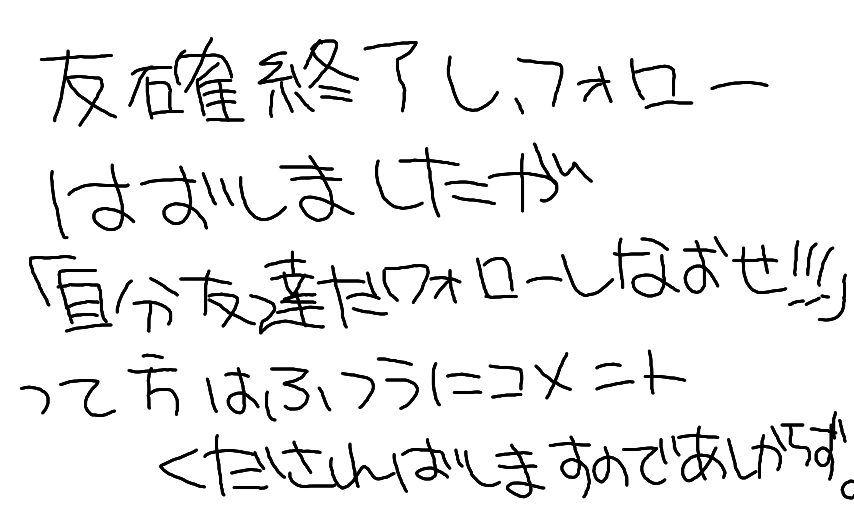 友確終了し、フォロー
はずしましたが
「自分友達だフォローしなおせ!!!」
って方はふつうにコメント
くださればしますのであしからず。